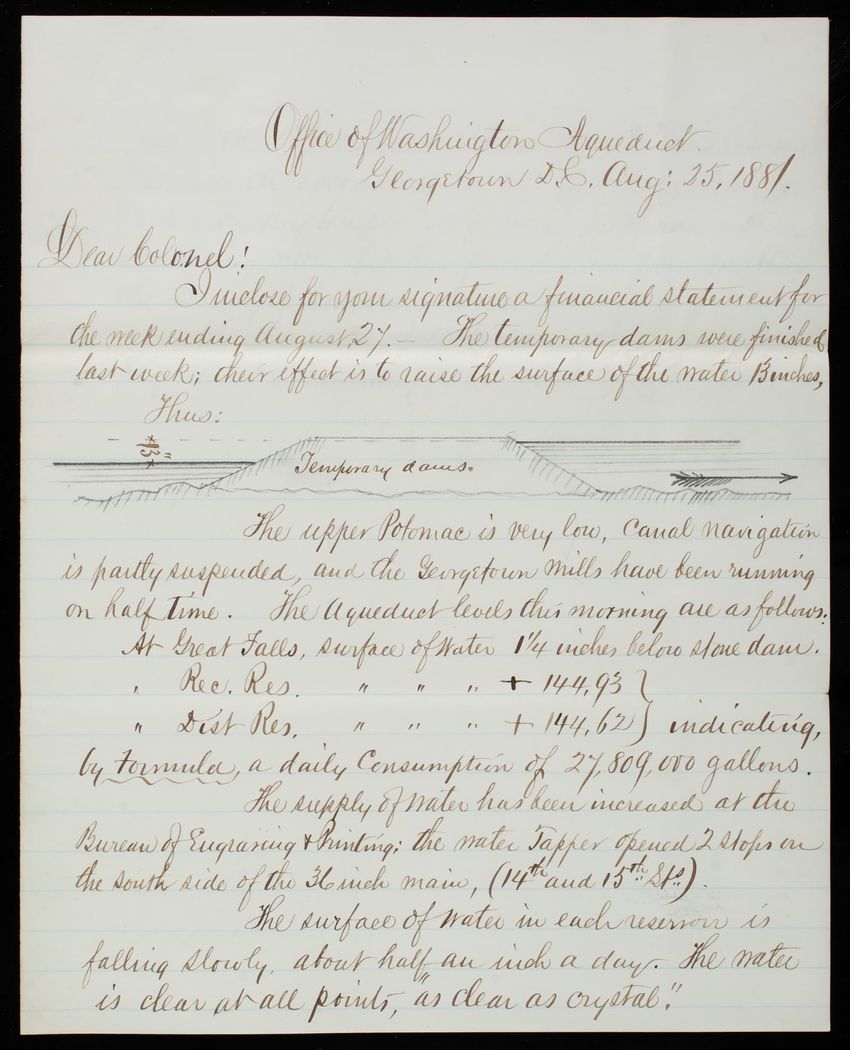 Office of Washington Aqueduct.
Georgetown D.C. Aug: 25, 1881.
Dear Colonel!
I inclose for your signature a financial statement for
the week ending August 27. — The temporary dams were finished
last week; their effect is to raise the surface of the water 13 inches,
Thus:
13"
Temporary dams.
The upper Potomac is very low, Canal navigation
is partly suspended, and the Georgetown Mills have been running
on half time. The Aqueduct levels this morning are as follows:
At Great Falls, surface of water 1 1/4 inches below stone dam.
" Rec. Res. " " " + 144,93 }
" Dist Res. " " " + 144,62 } indicating,
by Formula, a daily Consumption of 27,809,000 gallons.
The supply of water has been increased at the
Bureau of Engraving & Printing; the water Tapper opened 2 stops on
the south side of the 36 inch main, (14th and 15th Sts).
The surface of water in each reservoir is
falling slowly, about half an inch a day. The water
is clear at all points, "as clear as crystal."